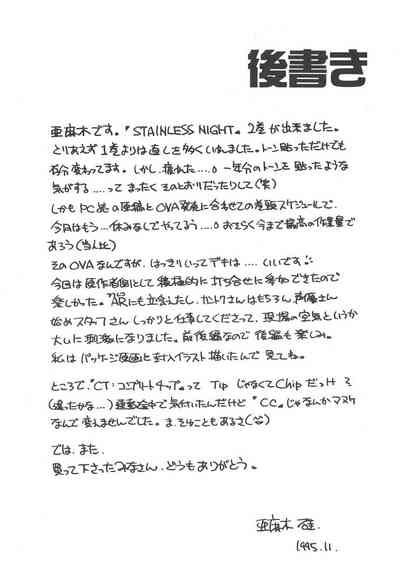 後書き
亜麻木です。『STAINLESS NIGHT』2巻が出来ました。
とりあえず1巻よりは直しを多くいれました。トーン貼っただけでも
変わってます。しかし、疲れた‥‥。一年分のトーンを貼ったような
気がする‥‥って まったくそのとおりだったりして(笑)
しかもPC版の原稿とOVA発売に合わせての進行スケジュールで、
今月はもう…休みなしでやってるう‥‥。おそらく今まで最高の作業量で
あろう(当人比)
そのOVAなんですが、はっきりいってデキは‥‥くいいです
今回は原作者側として積極的に打ち合せに参加できたので
楽しかった。ARにも立会えたし、さんはもちろん、声優さん
始めスタッフさんしっかりと仕事してくださって、現場の空気というか
大いに刺激になりました。前後編なので後編も楽しみ。
私はパッケージ原画と封入イラスト描いたんで見てね。
ところで、“CT:コンプリートチップ”って TipじゃなくてChipだっけ?
(違ったかな…)運動会中で気付いたんだけど“CC”じゃなんかマヌケ
なんで変えませんでした。ま、そゆこともあるさ
では、また、
買って下さったみなさん、どうもありがとう。
亜麻木
1995.11.